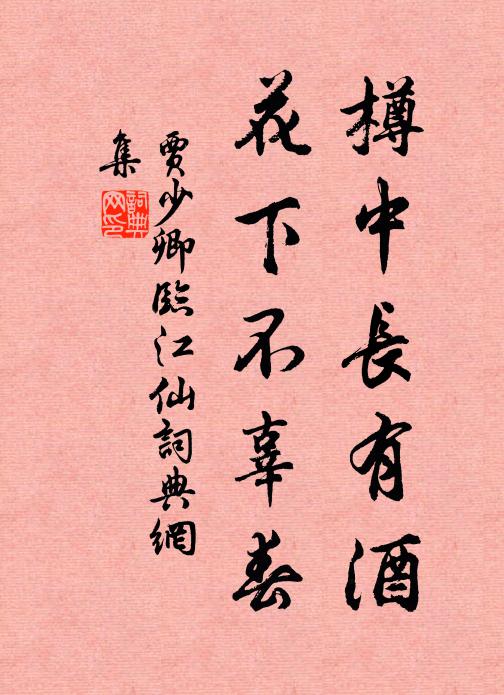 樽中長有酒
花下不辜春
賈少卿臨江仙詞典網
集
詞典
网印